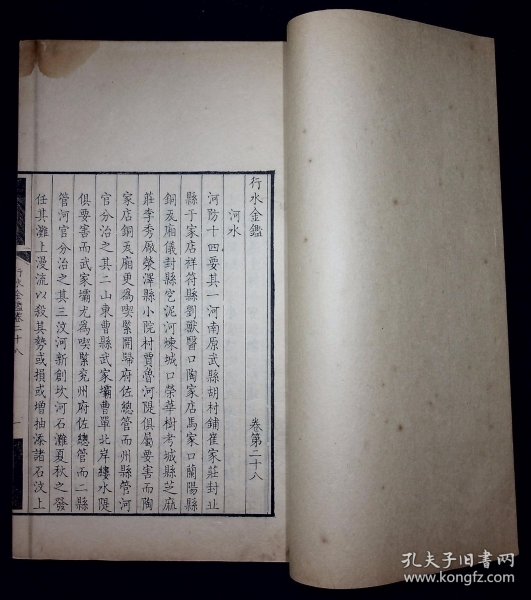 行水金鑑 卷第二十八
河水
河防十四要其一河南原武縣胡村鋪崔家莊封丘
縣于家店祥符縣劉獸醫口陶家店馬家口蘭陽縣
銅瓦廂儀封縣宅泥河煉城口榮華樹考城縣芝麻
莊李秀厰滎澤縣小院村賈魯河隄俱屬要害而陶
家店銅瓦廂更為喫緊開歸府佐總管而州縣管河
官分治之其二山東曹縣武家壩曹單北岸縷水隄
俱要害而武家壩尤為喫緊兖州府佐總管而二縣
管河官分治之其三汶河新創坎河石灘夏秋之發
任其灘上漫流以殺其勢或損或增抽添諸石汶上
行水金鑑卷二十八
一
孔夫子旧书网
www.kongfz.com